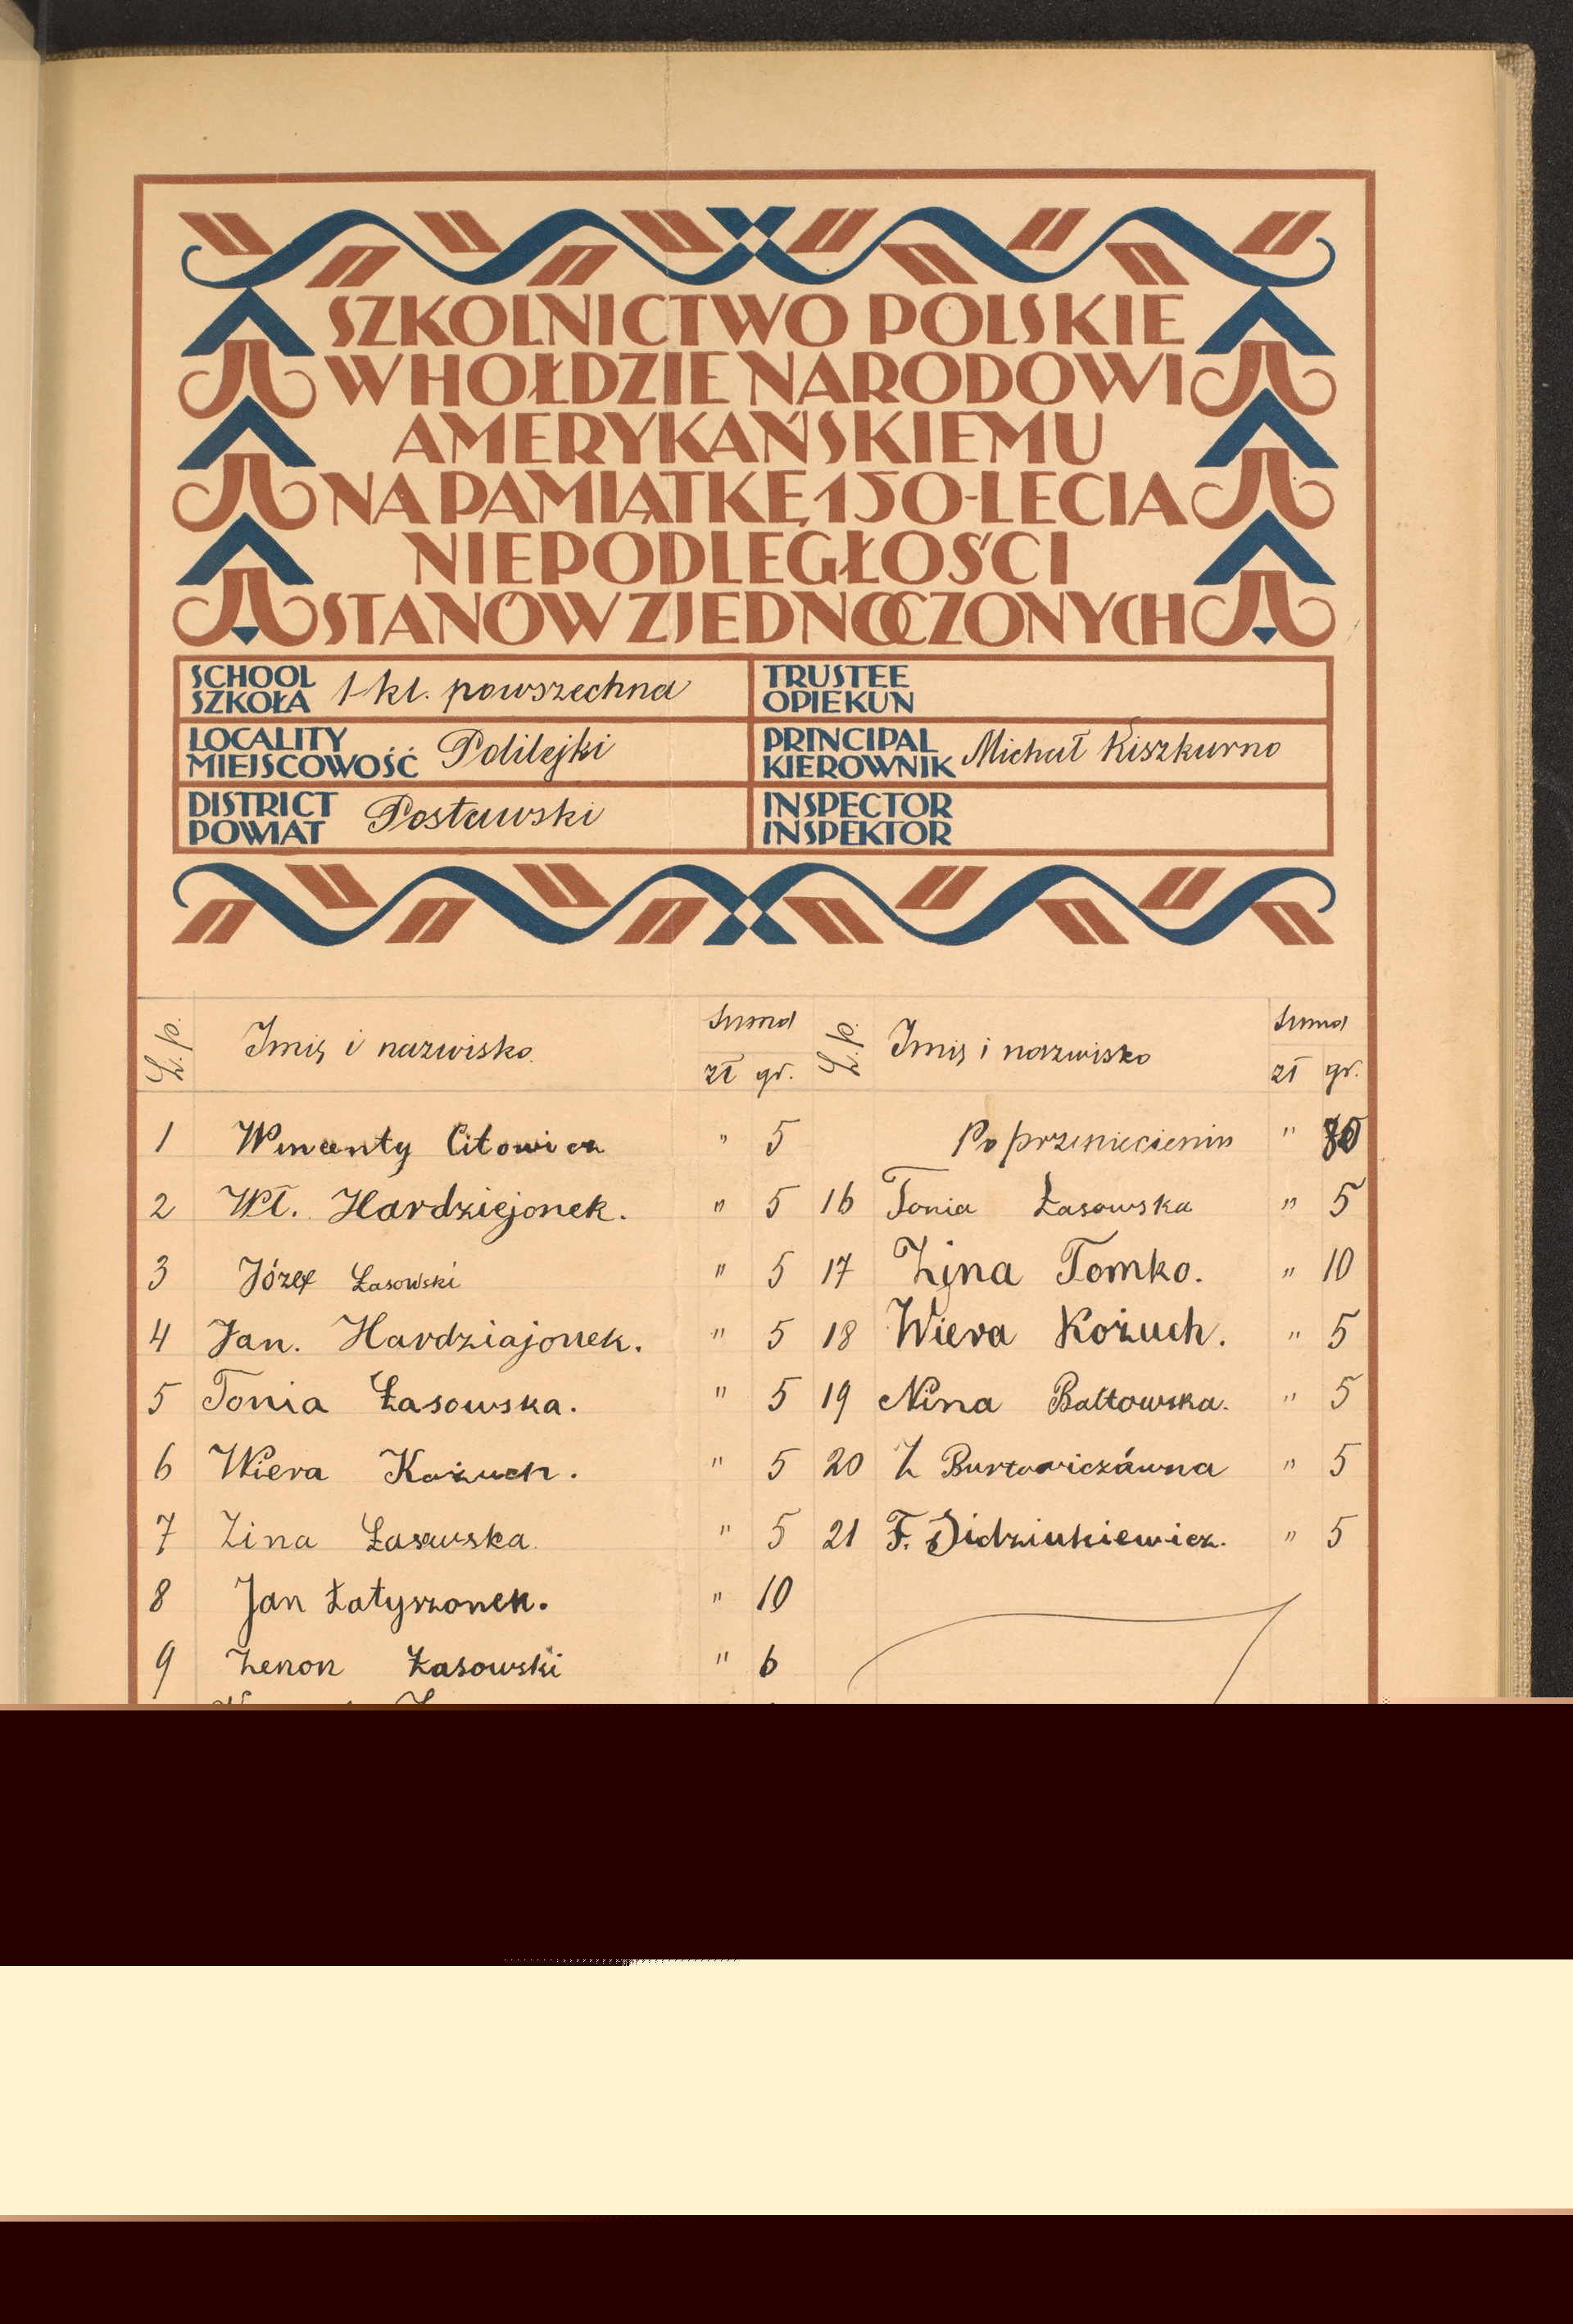 SZKOLNICTWO POLSKIE
W HOŁDZIE NARODOWI
AMERYKAŃSKIEMU
NA PAMIĄTKĘ 150-LECIA
NIEPODLEGŁOŚCI
STANÓW ZJEDNOCZONYCH
SCHOOL
SZKOŁA 1-kl. powszechna
TRUSTEE
OPIEKUN
LOCALITY
MIEJSCOWOŚĆ Polilejki
PRINCIPAL
KIEROWNIK Michał Kiszkurno
DISTRICT
POWIAT Postawski
INSPECTOR
INSPEKTOR
L.p. Imię i nazwisko Suma zł gr.
1 Wincenty Citowicz " 5
2 Wł. Hardziejonek. " 5
3 Józef Łasowski " 5
4 Jan. Hardziajonek. " 5
5 Tonia Łasowska. " 5
6 Wiera Kożuch. " 5
7 Zina Łasowska. " 5
8 Jan Łatyszonek. " 10
9 Zenon Łasowski " 6
L.p. Imię i nazwisko Suma zł gr.
Po przeniesieniu "
16 Tonia Łasowska " 5
17 Zina Tomko. " 10
18 Wiera Kożuch. " 5
19 Nina Baltowska. " 5
20 Z " 5
21 F. Didziukiewicz. " 5